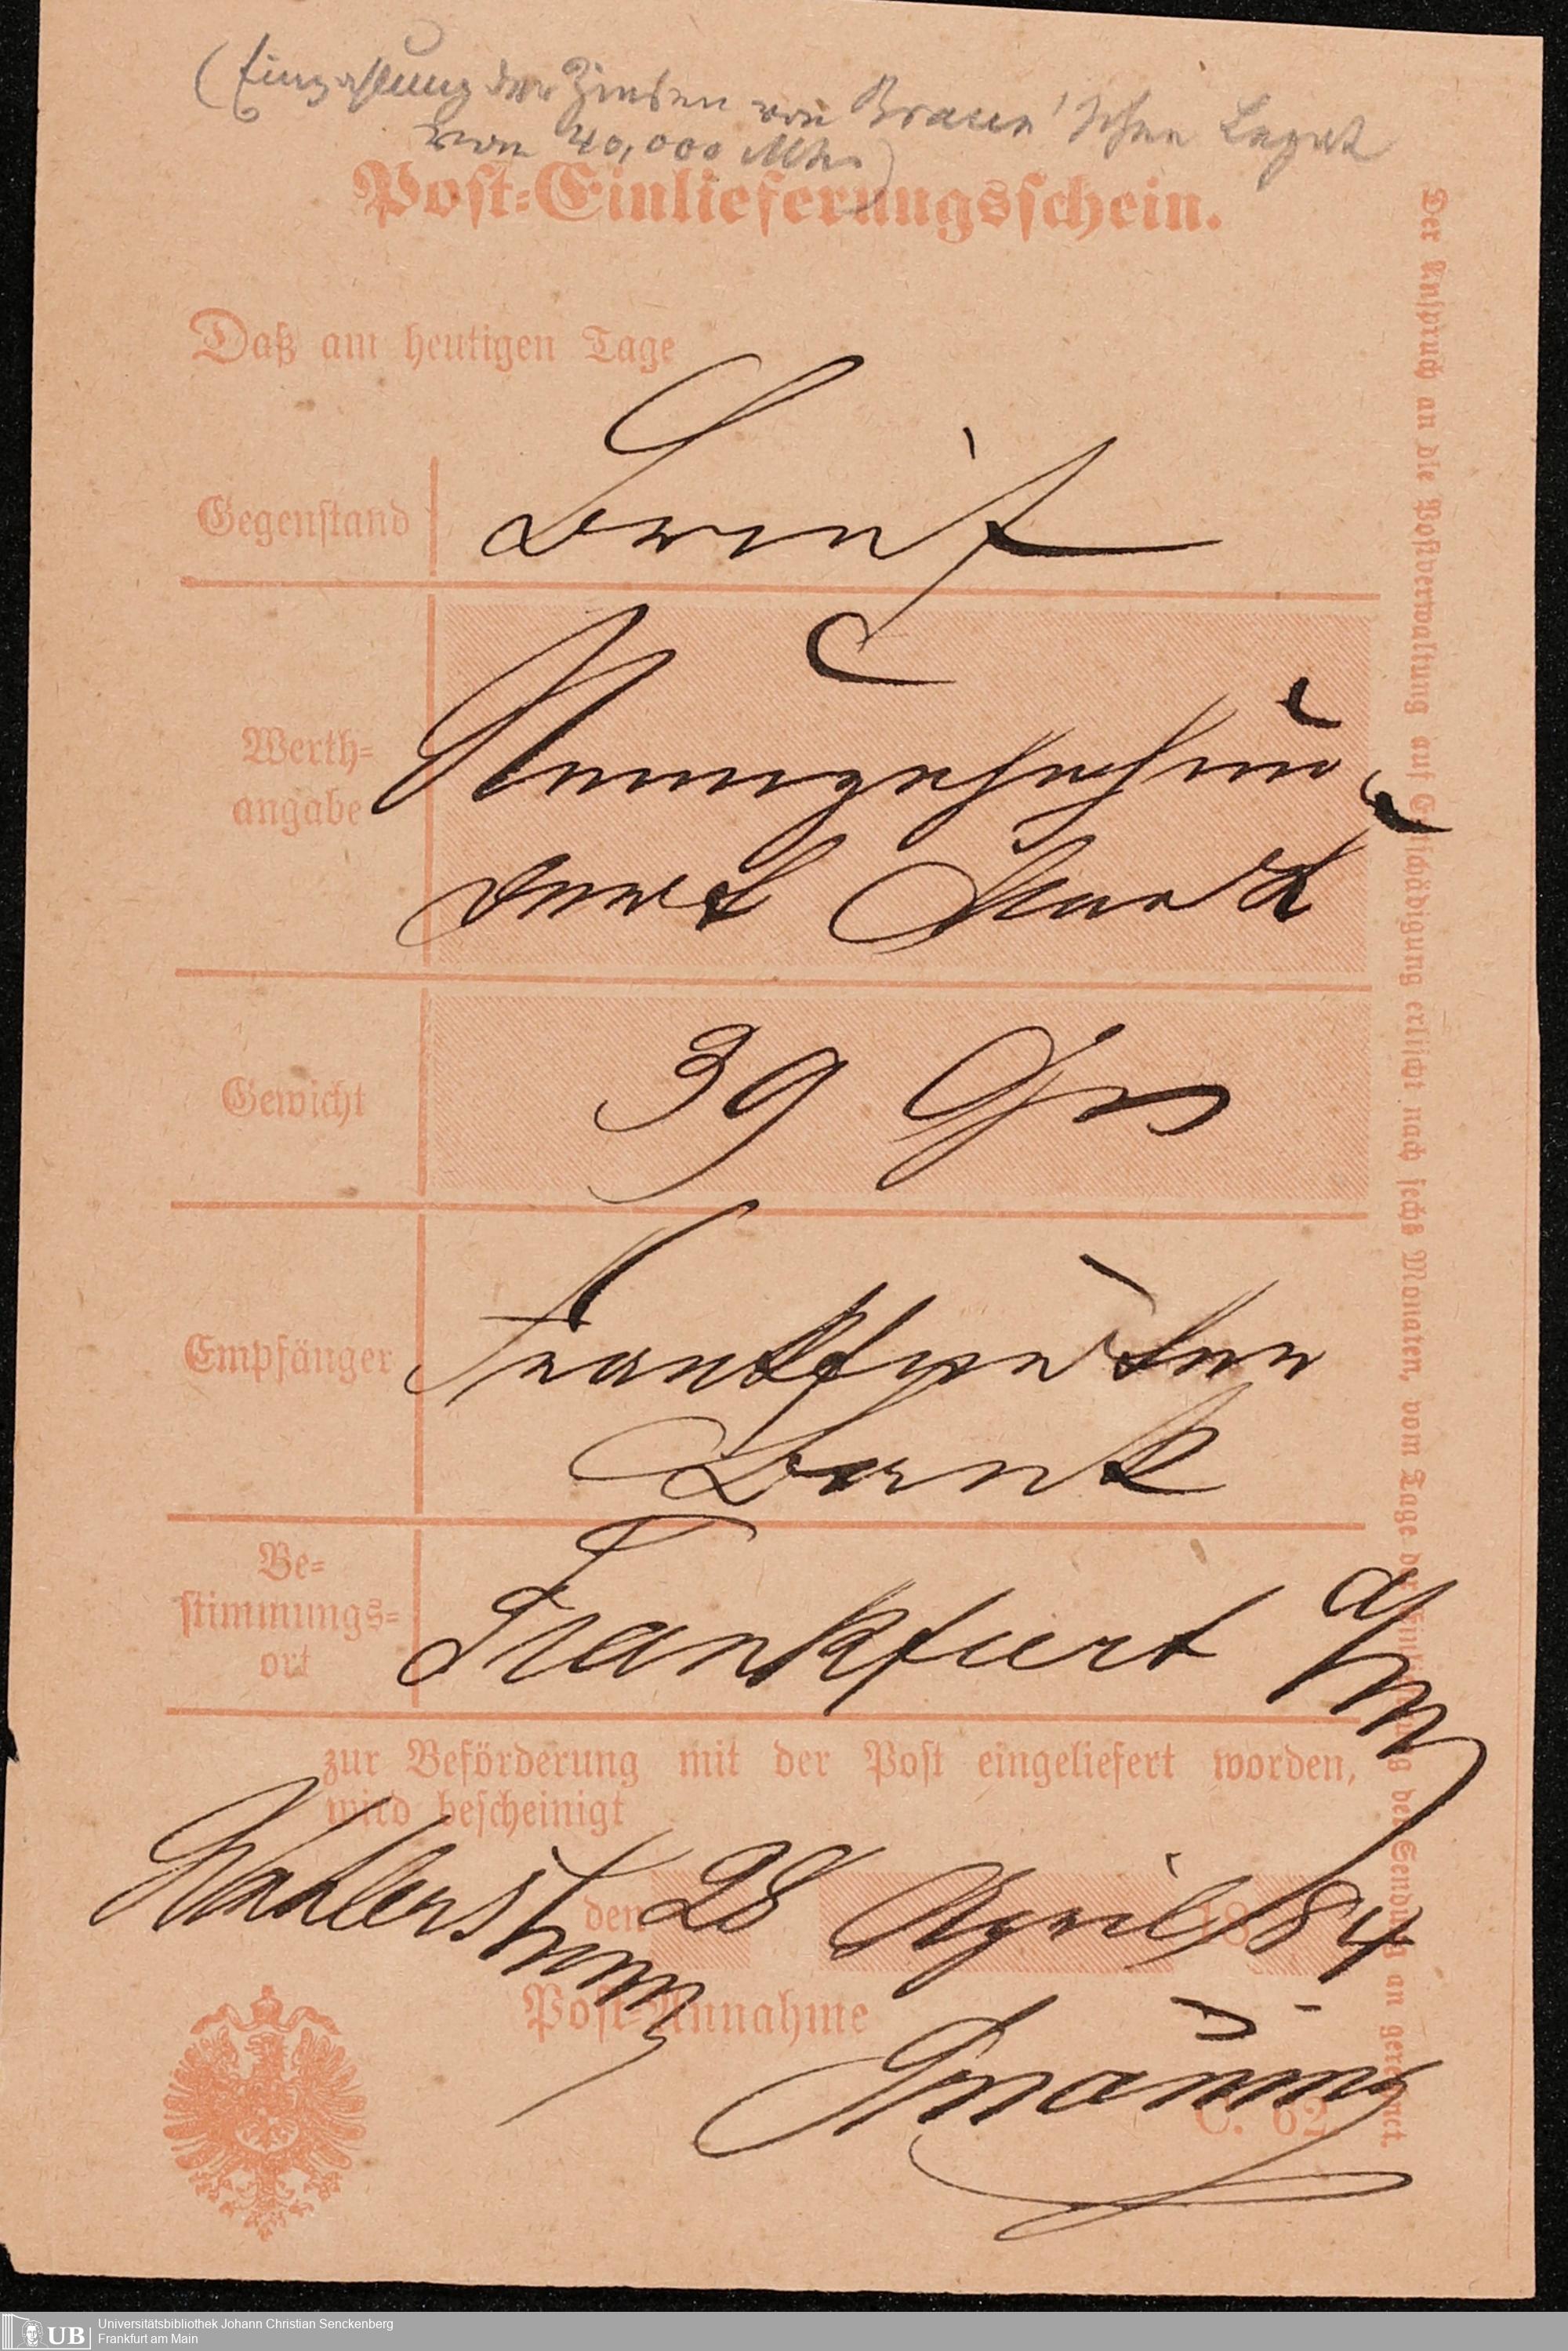 (Einzahlung der Zinsen von Braun'schen Legat
von 40,000 Mk.)
Post-Einlieferungsschein.
Daß am heutigen Tage
Gegenstand Brief
Werth-
angabe Neunzehnhun
dert Mark
Gewicht 39 Gr
Empfänger Frankfurter
Bank
Be-
stimmungs-
ort Frankfurt a/m
zur Beförderung mit der Post eingeliefert worden,
wird bescheinigt
den 28 April 1884
Post-Annahme
C. 62
Der Anspruch an die Postverwaltung auf Entschädigung erlischt nach sechs Monaten, vom Tage der Einlieferung der Sendung an gerechnet.
UB Universitätsbibliothek Johann Christian Senckenberg
Frankfurt am Main